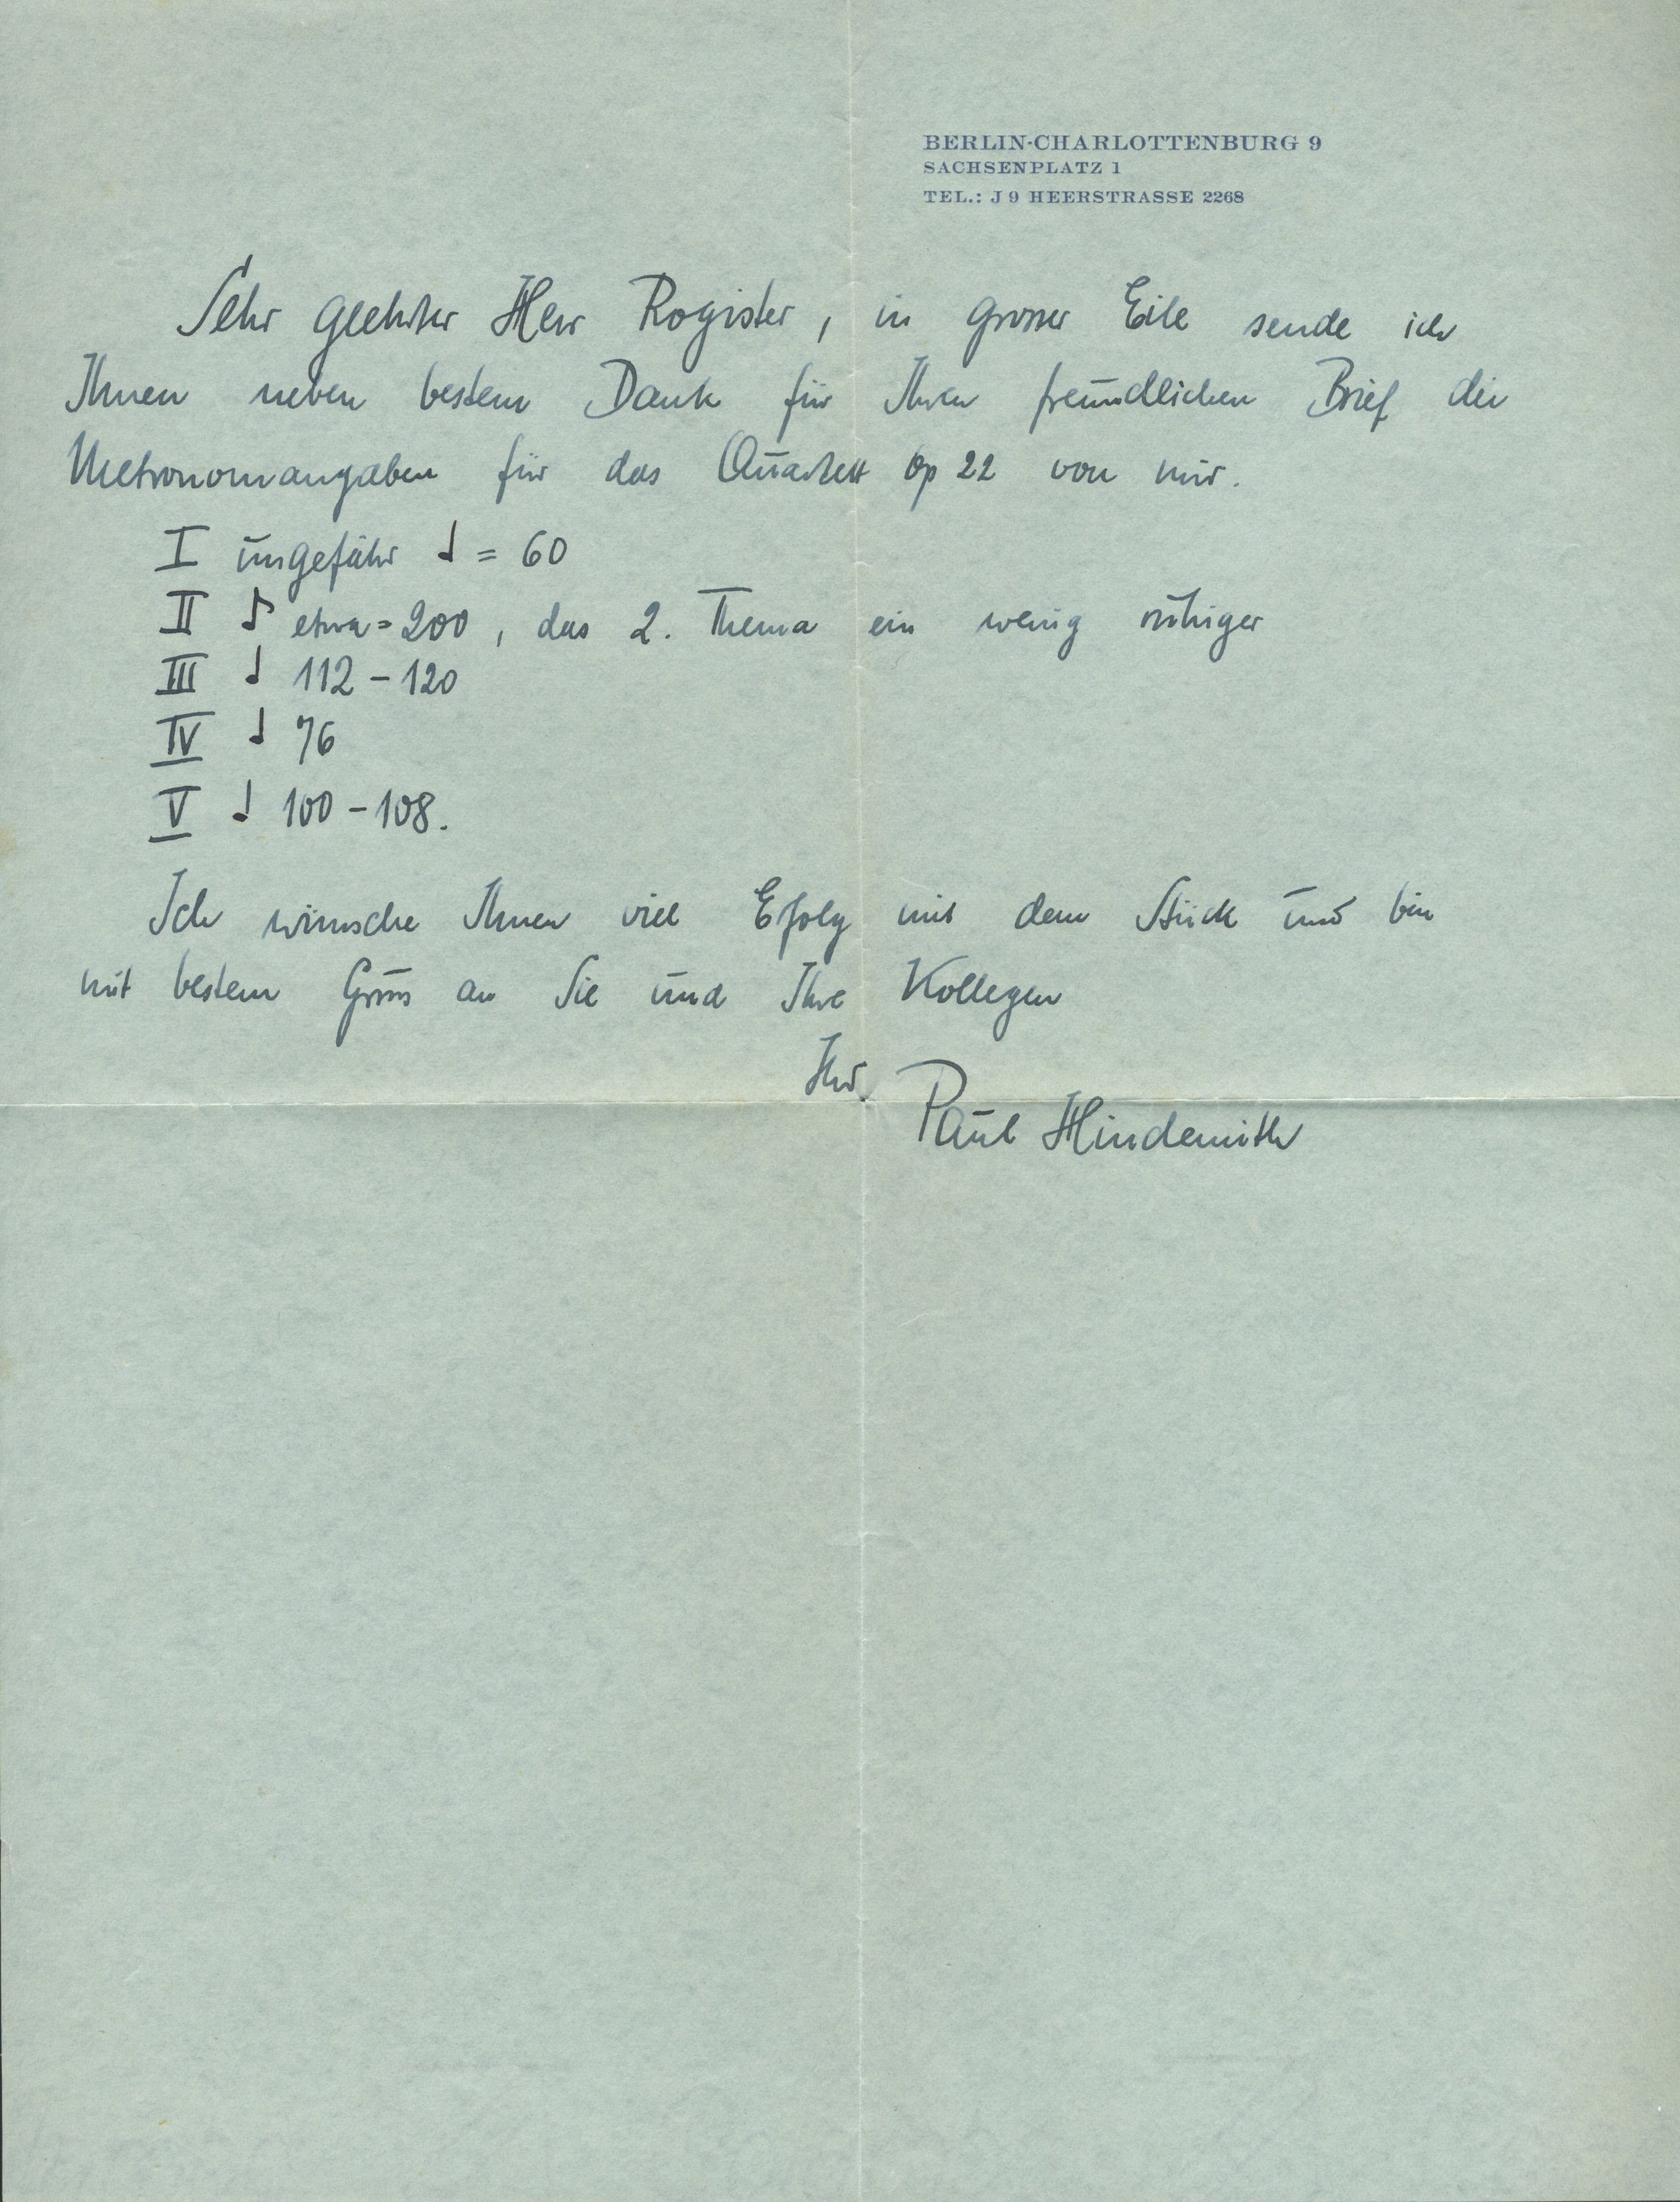 BERLIN-CHARLOTTENBURG 9
SACHSENPLATZ 1
TEL.: J 9 HEERSTRASSE 2268
Sehr geehrter Herr Rogister, in grosser Eile sende ich
Ihnen neben bestem Dank für Ihren freundlichen Brief die
Metronomangaben für das Quartett op 22 von mir.
I ungefähr ♩ = 60
II ♪ etwa = 200, das 2. Thema ein wenig ruhiger
III ♩ 112 – 120
IV ♩ 76
V ♩ 100 – 108.
Ich wünsche Ihnen viel Efolg mit dem Stück und bin
mit bestem Gruss an Sie und Ihre Kollegen
Ihr
Paul Hindemith